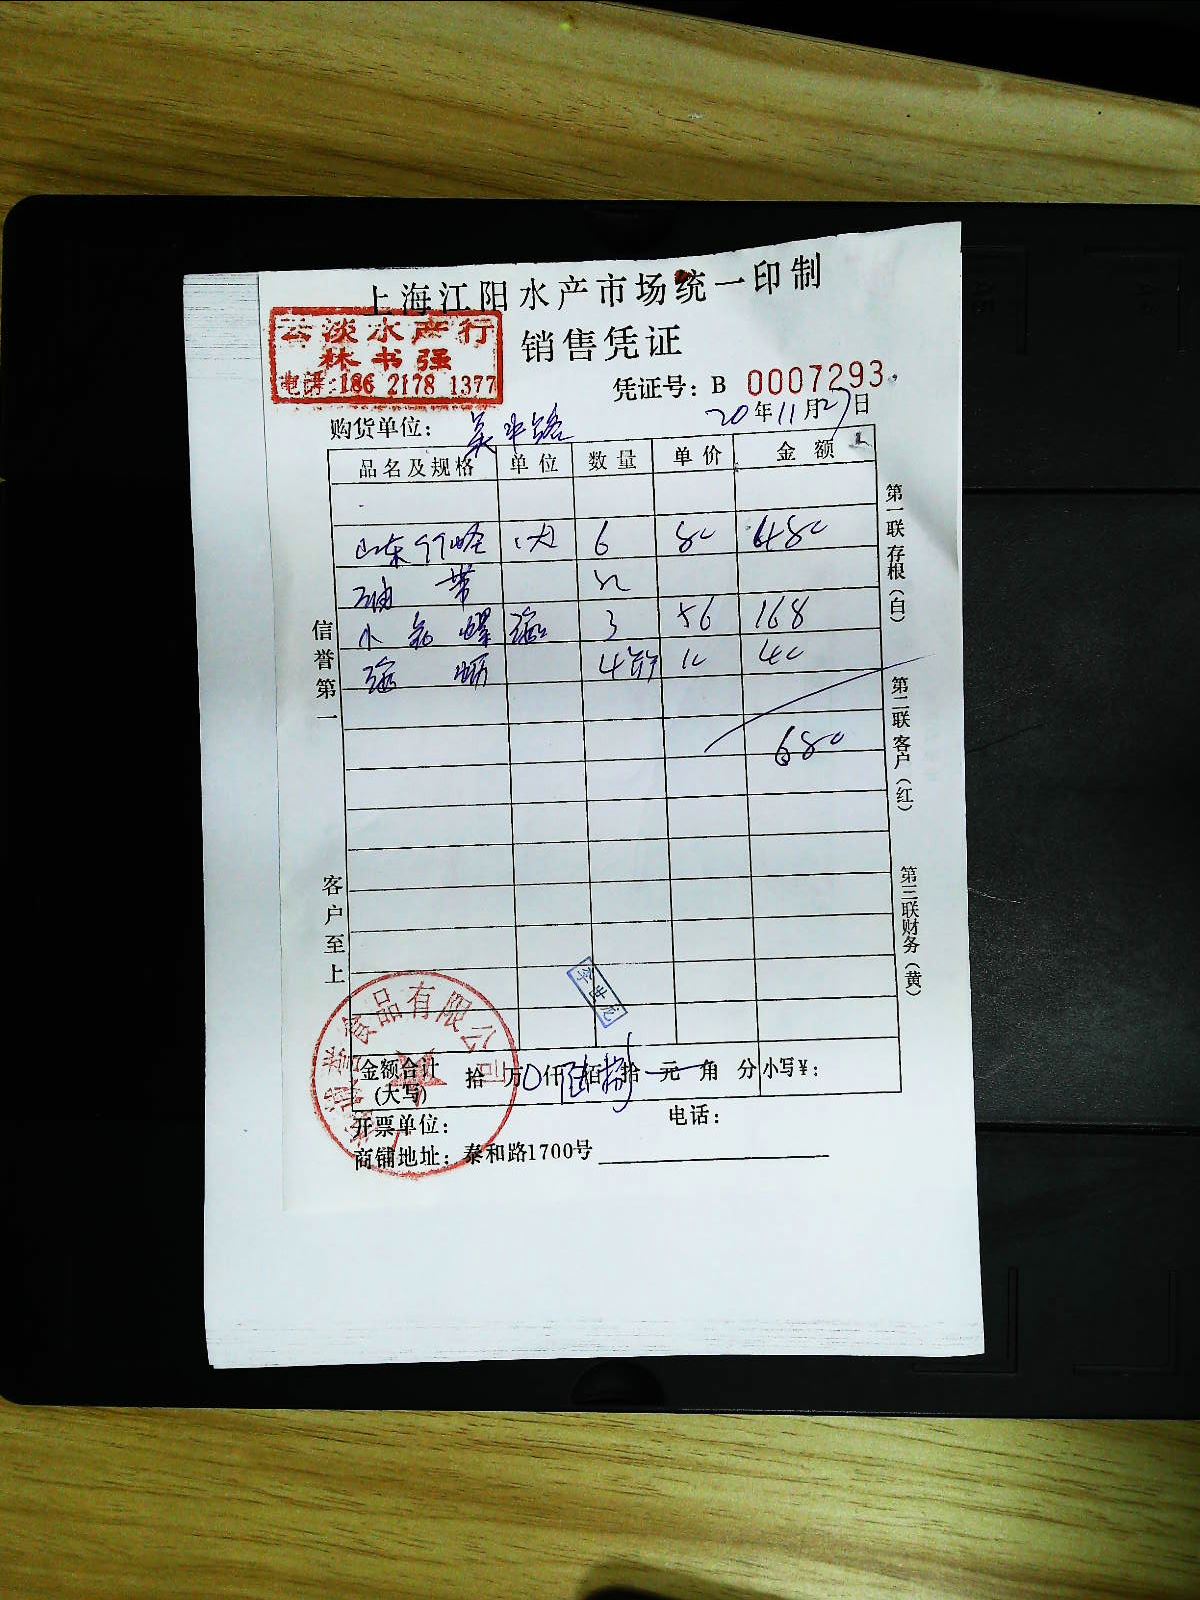 上海江阳水产市场统一印制
云淡水产行
林书强
电话:186 2178 1377
销售凭证
凭证号：B 0007293
20年11月27日
购货单位：吴中路
品名及规格 单位 数量 单价 金额
山东 6 80 480
带
小 螺 3 56 168
4 10 40
680
信誉第一
客户至上
第一联 存根（白）
第二联 客户（红）
第三联 财务（黄）
李世龙
食品有限公司
金额合计(大写) 拾 万0仟陆佰捌拾 元 角 分 小写￥：
开票单位： 电话：
商铺地址：泰和路1700号